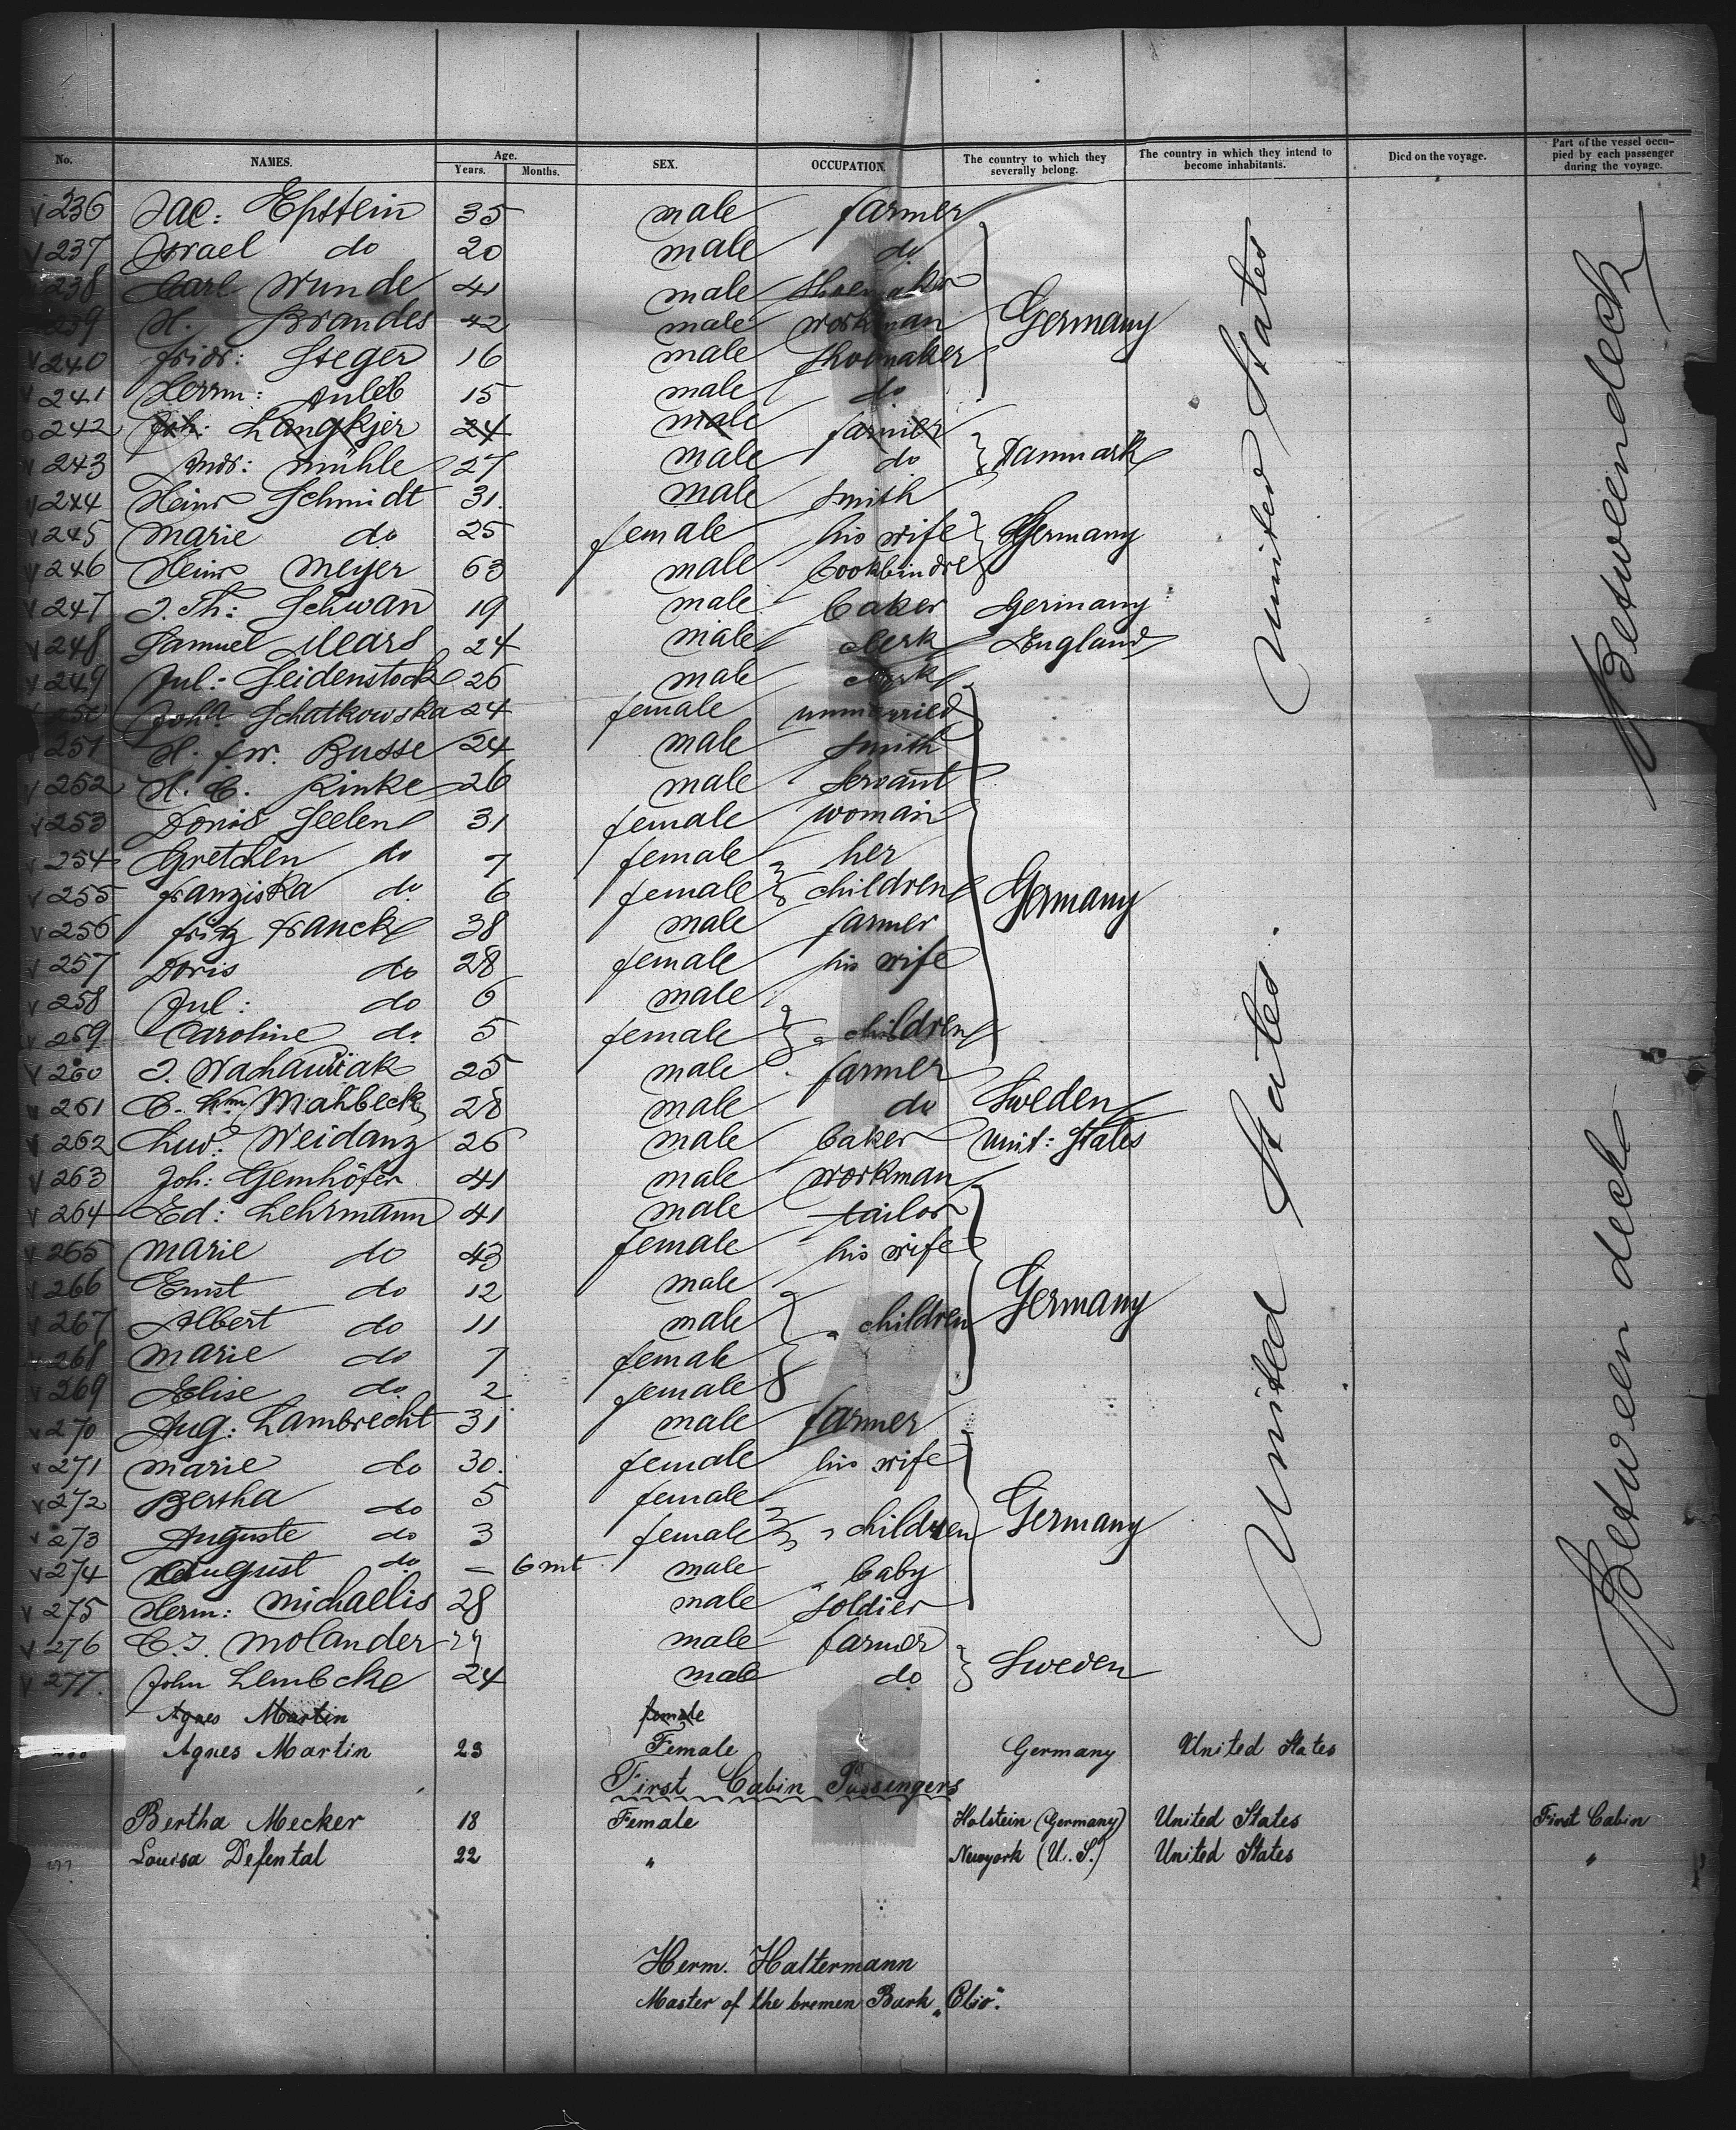 No. NAMES. Age. Years. Months. SEX. OCCUPATION. The country to which they severally belong. The country in which they intend to become inhabitants. Died on the voyage. Part of the vessel occupied by each passenger during the voyage.
236 Jac: Epstein 35 male farmer
237 Israel do 20 male do
238 Carl Wunde 41 male shoemaker
239 H. Brandes 42 male workman Germany
240 Fridr: Steger 16 male shoemaker
241 Herrm: Anleb 15 male do
242 Joh: Langkjer 24 male farmer
243 Andr: Mühle 27 male do Danmark
244 Heinr Schmidt 31. male smith
245 Marie do 25 female his wife Germany
246 Heinr Meyer 63 male bookbindre
247 J. Th: Schwan 19 male baker Germany
248 Samuel Mears 24 male clerk England
249 Jul: Seidenstock 26 male clerk
250 Joha Schatkowska 24 female unmarried
251 H. f. W. Busse 24 male smith
252 H. C. Rinke 26 male servant
253 Doris Seelen 31 female woman
254 Gretchen do 7 female her
255 Franziska do 6 female children Germany
256 Fritz Franck 38 male farmer
257 Doris do 28 female his wife
258 Jul: do 6 male
259 Caroline do 5 female " children
260 J. 25 male farmer
261 C. Mahbeck 28 male do Sweden
262 Luw: Weidanz 26 male baker unit: States
263 Joh: Gemhöfer 41 male workman
264 Ed: Lehrmann 41 male tailor
265 Marie do 43 female his wife
266 Ernst do 12 male
267 Albert do 11 male " children Germany
268 Marie do 7 female
269 Elise do 2 female
270 Aug: Lambrecht 31 male farmer
271 Marie do 30. female his wife
272 Bertha do 5 female
273 Auguste do 3 female " children Germany
274 August do — 6 mt male " baby
275 Herm: Michaelis 28 male soldier
276 C. J. Molander 27 male farmer
277. John Lembcke 24 male do Sweden
Agnes Martin female
Agnes Martin 23 Female Germany United States
First Cabin Passengers
Bertha Mecker 18 Female Holstein (Germany) United States First Cabin
Louisa Defental 22 " Newyork (U. S.) United States "
United States
United States
Betweendeck
Between deck
Herm. Haltermann
Master of the bremen Bark „Clio".